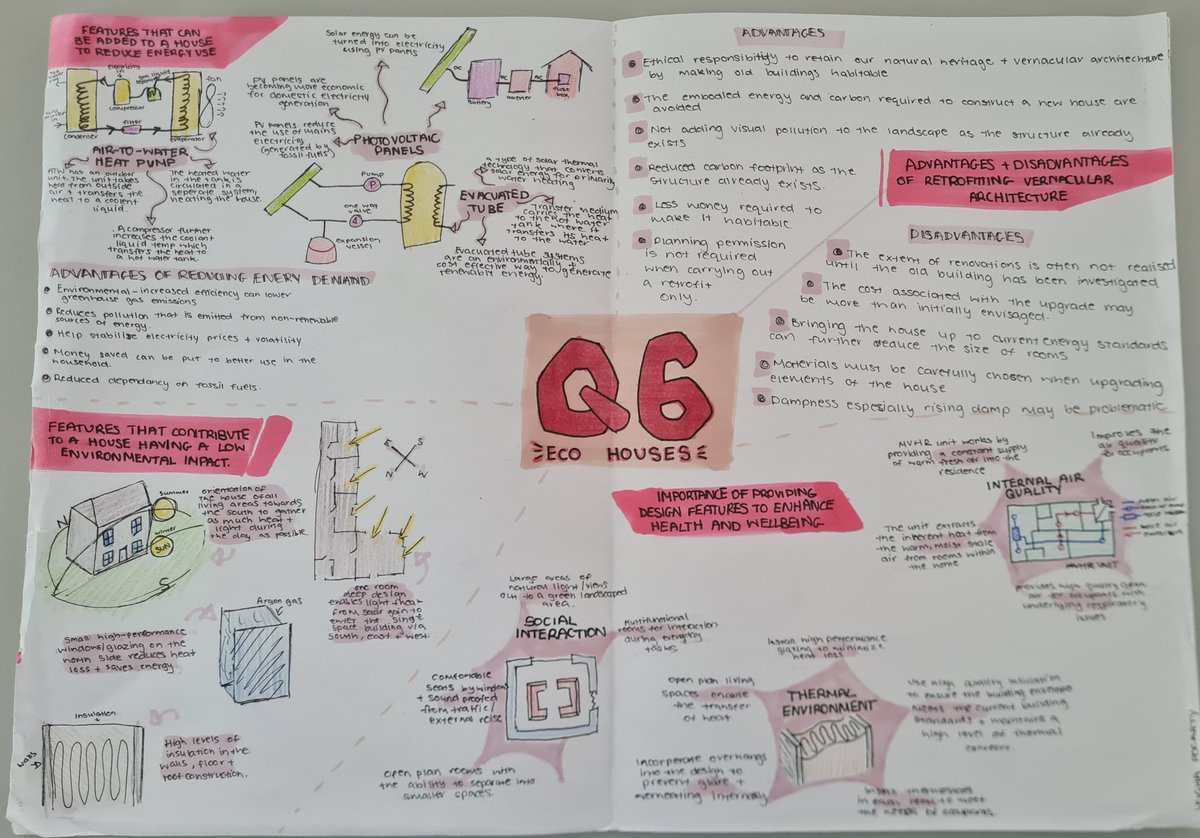 FEATURES THAT CAN
BE ADDED TO A HOUSE
TO REDUCE ENERGY USE
electricity
in
gas liquid
fan
compressor
filter
condenser
evaporator
AIR-TO-WATER
HEAT PUMP
ATW has an outdoor
unit. The unit takes
heat from outside
air + transfers the
heat to a coolent
liquid.
The heated water
in the tank is
circulated in a
seperate system,
heating the house.
A compressor further
increases the coolant
liquid temp which
transfers the heat to
a hot water tank.
Solar energy can be
turned into electricity
using PV panels
PV panels are
becoming more economic
for domestic electricity
generation
PV panels reduce
the use of mains
electricity
(generated by
fossil fuels)
PHOTOVOLTAIC
PANELS
DC
battery
DC
inverter
AC
fuse
box
Pump
P
one way
valve
expansion
vessel
EVACUATED
TUBE
a type of solar thermal
technology that converts
solar energy for primarily
water heating.
Transfer medium
carries the heat
to the hot water
tank where it
transfers its heat
to the water
Evacuated tube systems
are an environmentally +
cost effective way to generate
renewable energy.
ADVANTAGES OF REDUCING ENERY DEMAND
Environmental-increased efficiency can lower
greenhouse gas emissions
Reduces pollution that is emitted from non-renewable
sources of energy.
Help stabilize electricity prices + volatility
Money saved can be put to better use in the
household.
Reduced dependancy on fossil fuels.
ADVANTAGES
Ethical responsibility to retain our natural heritage + vernacular architecture
by making old buildings habitable
The embodied energy and carbon required to construct a new house are
avoided
Not adding visual pollution to the landscape as the structure already
exists
Reduced carbon footprint as the
structure already exists.
Less money required to
make it habitable
Planning permission
is not required
when carrying out
a retrofit
only.
ADVANTAGES + DISADVANTAGES
OF RETROFITTING VERNACULAR
ARCHITECTURE
DISADVANTAGES
The extent of renovations is often not realised
until the old building has been investigated
The cost associated with the upgrade may
be more than initially envisaged.
Bringing the house up to current energy standards
can further reduce the size of rooms
Materials must be carefully chosen when upgrading
elements of the house
Dampness especially rising damp may be problematic
Q6
ECO HOUSES
FEATURES THAT CONTRIBUTE
TO A HOUSE HAVING A LOW
ENVIRONMENTAL IMPACT.
N
summer
winter
sun
S
orientation of
the house of all
living areas towards
the south to gather
as much heat +
light during
the day as possible.
E
S
N
W
one room
deep design
enables light + heat
from solar gain to
enter the single
space building via
south, east + west.
Small high-performance
windows/glazing on the
north side reduces heat
loss + saves energy.
Argon gas
Insulation
High levels of
insulation in the
walls, floor +
roof construction.
IMPORTANCE OF PROVIDING
DESIGN FEATURES TO ENHANCE
HEALTH AND WELLBEING
Large areas of
natural light/views
out to a green landscaped
area.
SOCIAL
INTERACTION
Multifunctional
rooms for interaction
during everyday
tasks
Comfortable
seats by windows
+ sound proofed
from traffic/
external noise
Open plan rooms with
the ability to separate into
smaller spaces.
MVHR unit works by
providing a constant supply
of warm fresh air into the
residence
Improves the
air quality
for occupants
INTERNAL AIR
QUALITY
The unit extracts
the inherent heat from
the warm, moist stale
air from rooms within
the home
MVHR UNIT
provides high quality clean
air for occupants with
underlying respiratory
issues
Install high performance
glazing to minimize
heat loss
Open plan living
spaces enable
the transfer
of heat
THERMAL
ENVIRONMENT
Use high quality insulation
to ensure the building envelope
meets the current building
standards + maintains a
high level of thermal
comfort
Incorporate overhangs
into the design to
prevent glare +
overheating internally